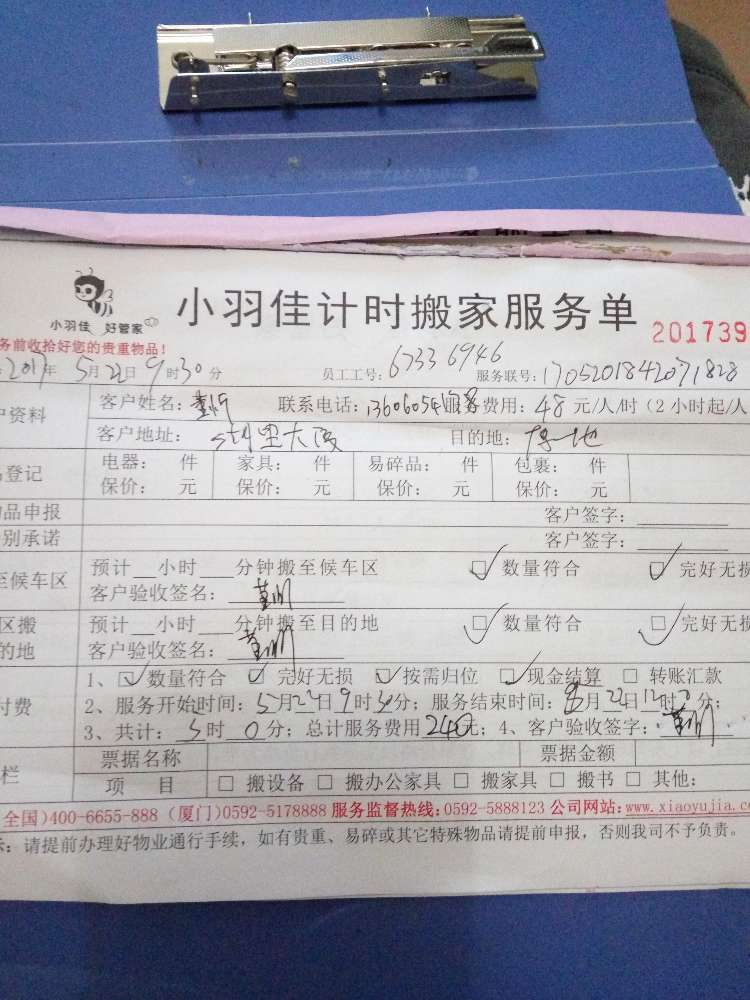 小羽佳 好管家
小羽佳计时搬家服务单
201739
务前收拾好您的贵重物品!
2017年5月22日9时30分 员工工号: 6733 6946 服务联号: 1705201842071828
户资料 客户姓名: 联系电话: 1360605 服务费用: 48元/人/时(2小时起/人
客户地址: 大厦 目的地:
登记 电器: 件 家具: 件 易碎品: 件 包裹: 件
保价: 元 保价: 元 保价: 元 保价: 元
品申报 客户签字:
别承诺 客户签字:
至候车区 预计 小时 分钟搬至候车区 □ 数量符合 □ 完好无损
客户验收签名:
区搬 预计 小时 分钟搬至目的地 □ 数量符合 □ 完好无损
的地 客户验收签名:
1、□ 数量符合 □ 完好无损 □ 按需归位 □ 现金结算 □ 转账汇款
付费 2、服务开始时间: 5月22日9时30分; 服务结束时间: 月22日12时 分;
3、共计: 5时0分; 总计服务费用240元; 4、客户验收签字:
票据名称 票据金额
栏 项 目 □ 搬设备 □ 搬办公家具 □ 搬家具 □ 搬书 □ 其他:
全国)400-6655-888 (厦门)0592-5178888 服务监督热线:0592-5888123 公司网站:www.xiaoyujia.co
示: 请提前办理好物业通行手续, 如有贵重、易碎或其它特殊物品请提前申报, 否则我司不予负责。